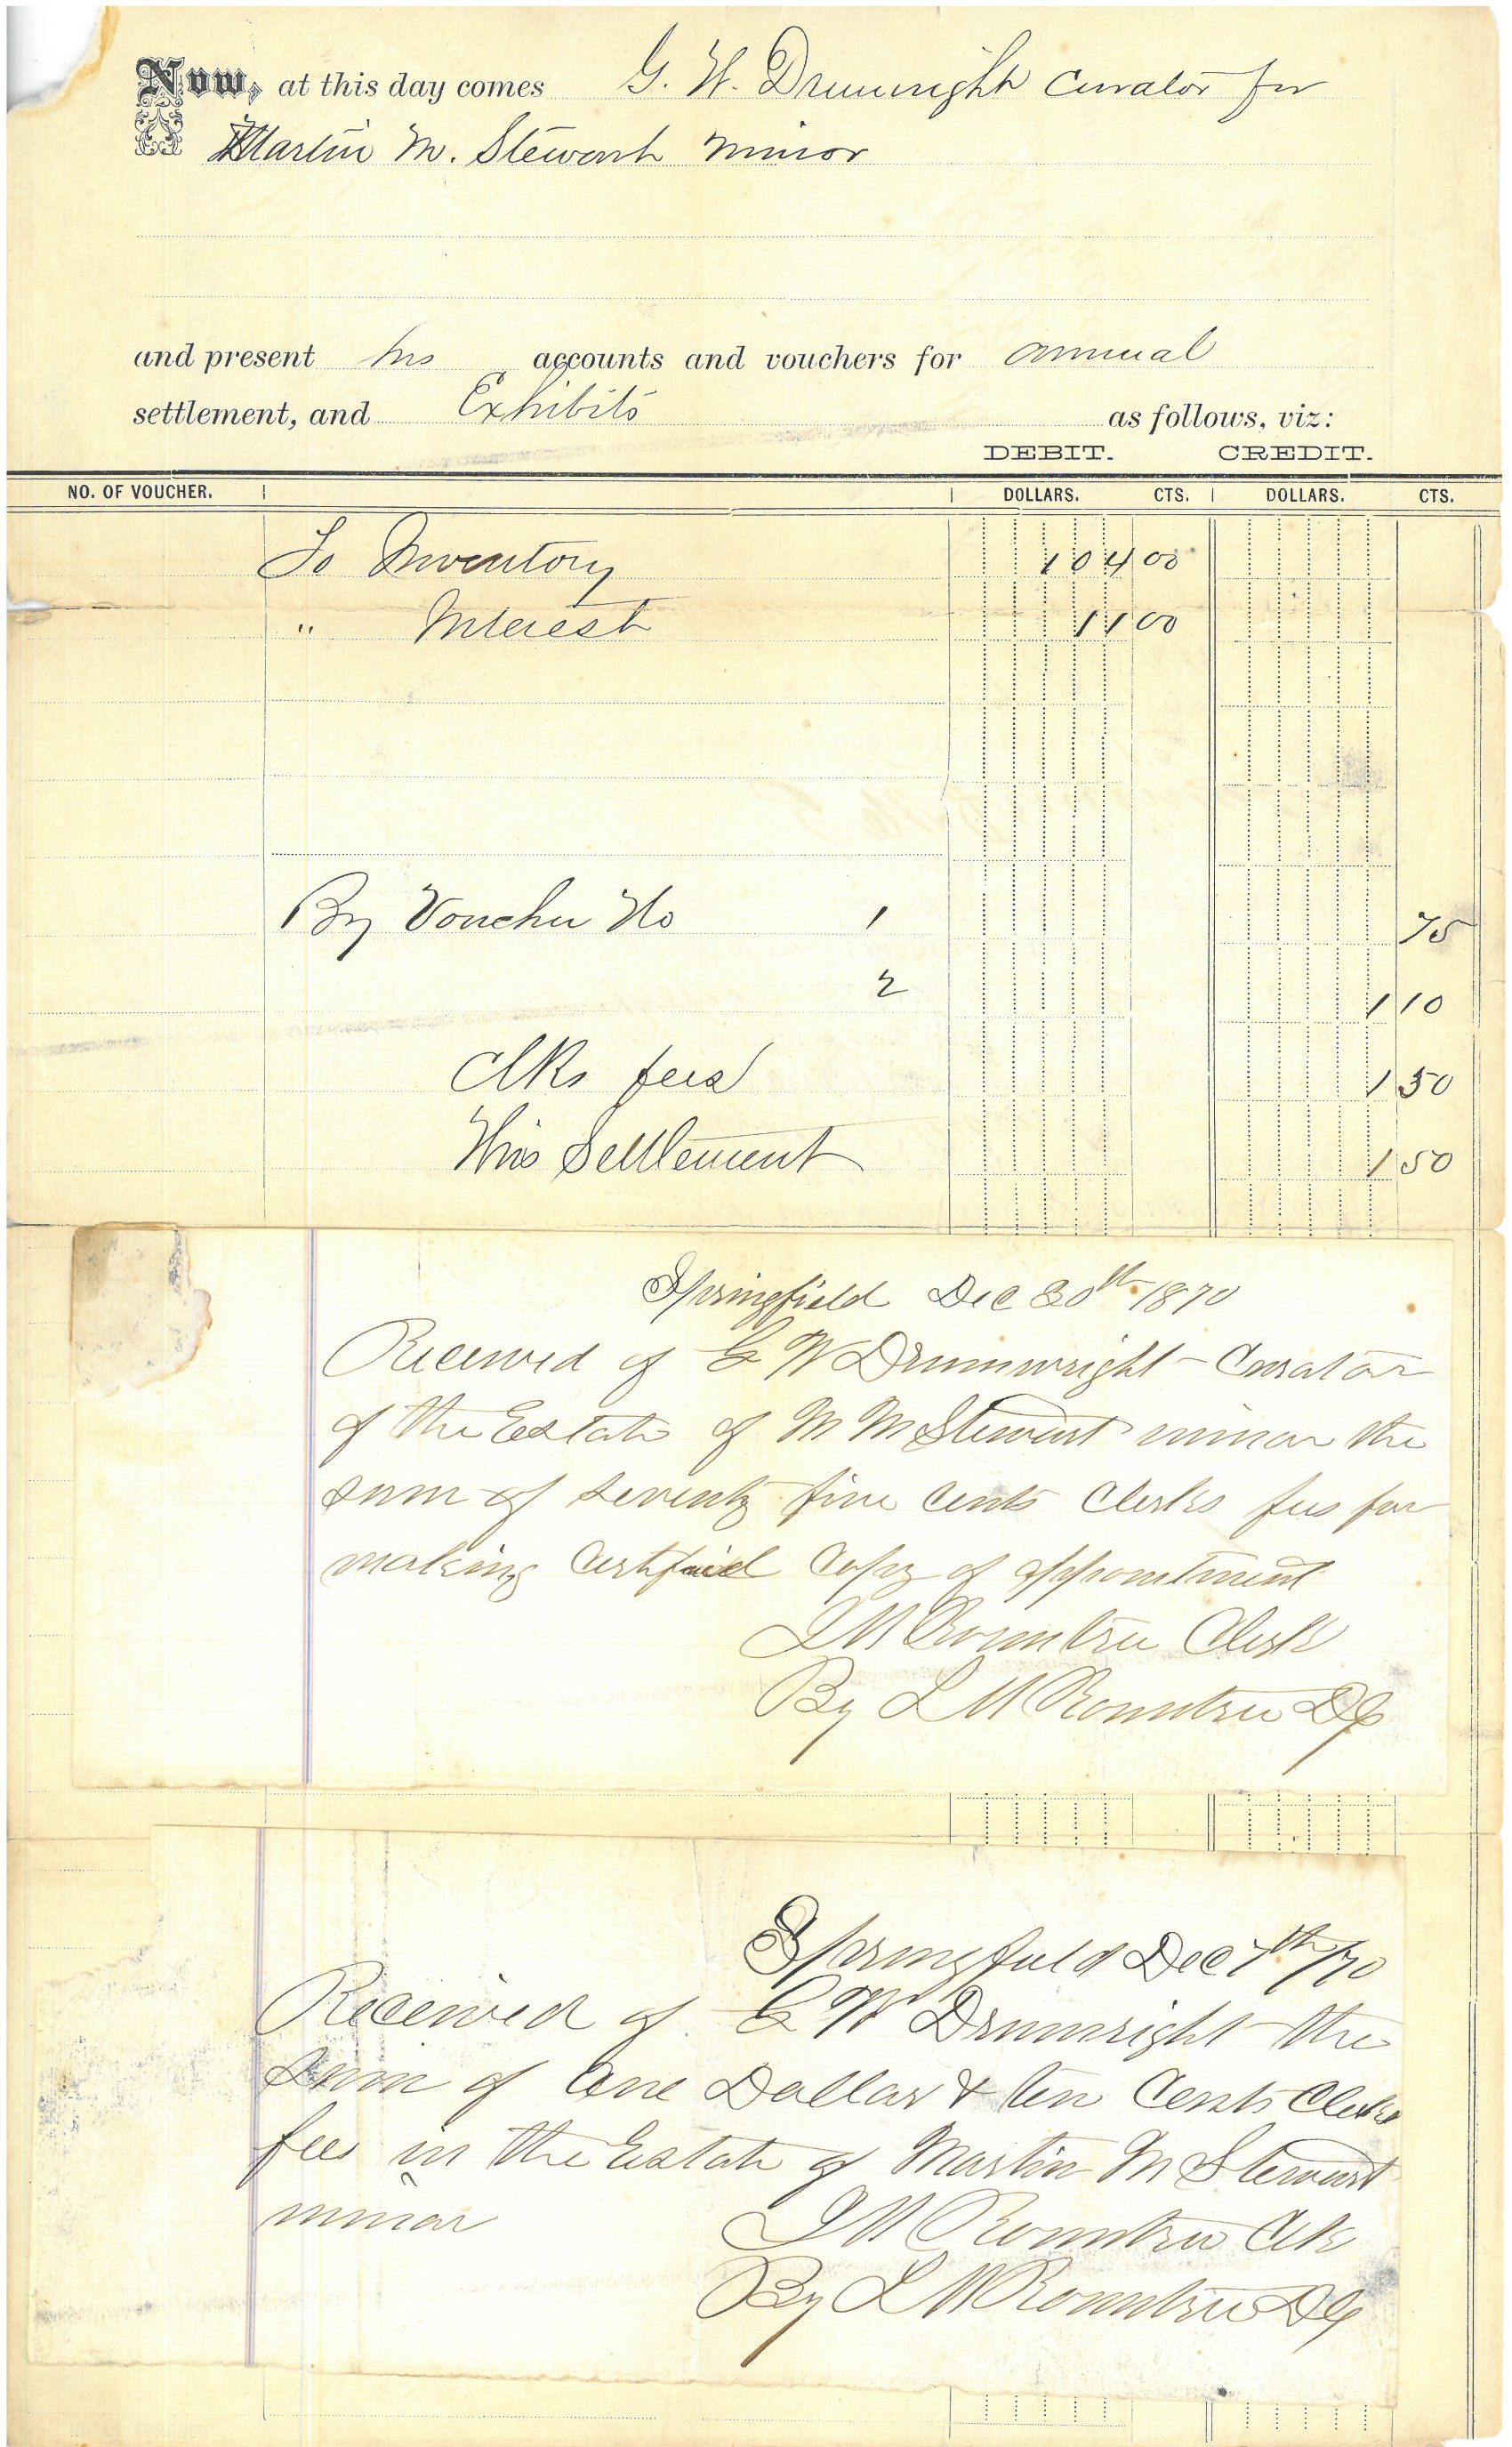 Now, at this day comes G. W. Drumwright Curator for
Martin M. Stewart minor
and present his accounts and vouchers for annual
settlement, and Exhibits as follows, viz:
DEBIT. CREDIT.
NO. OF VOUCHER. DOLLARS. CTS. DOLLARS. CTS.
To Inventory 104 00
" Interest 11 00
By Voucher No 1 75
2 1 10
Clks fees 1 50
This Settlement 1 50
Springfield Dec 30th 1870
Received of G W Drumwright Curator
of the Estate of M M Stewart minor the
sum of seventy five cents Clerks fees for
making Certified Copy of appointment
Rountree Clerk
By Rountree DC
Springfield Dec 7th /70
Received of G W Drumright the
sum of One Dollar & ten Cents Clerks
fees in the Estate of Martin M Stewart
minor
Rountree Clk
By Rountree DC